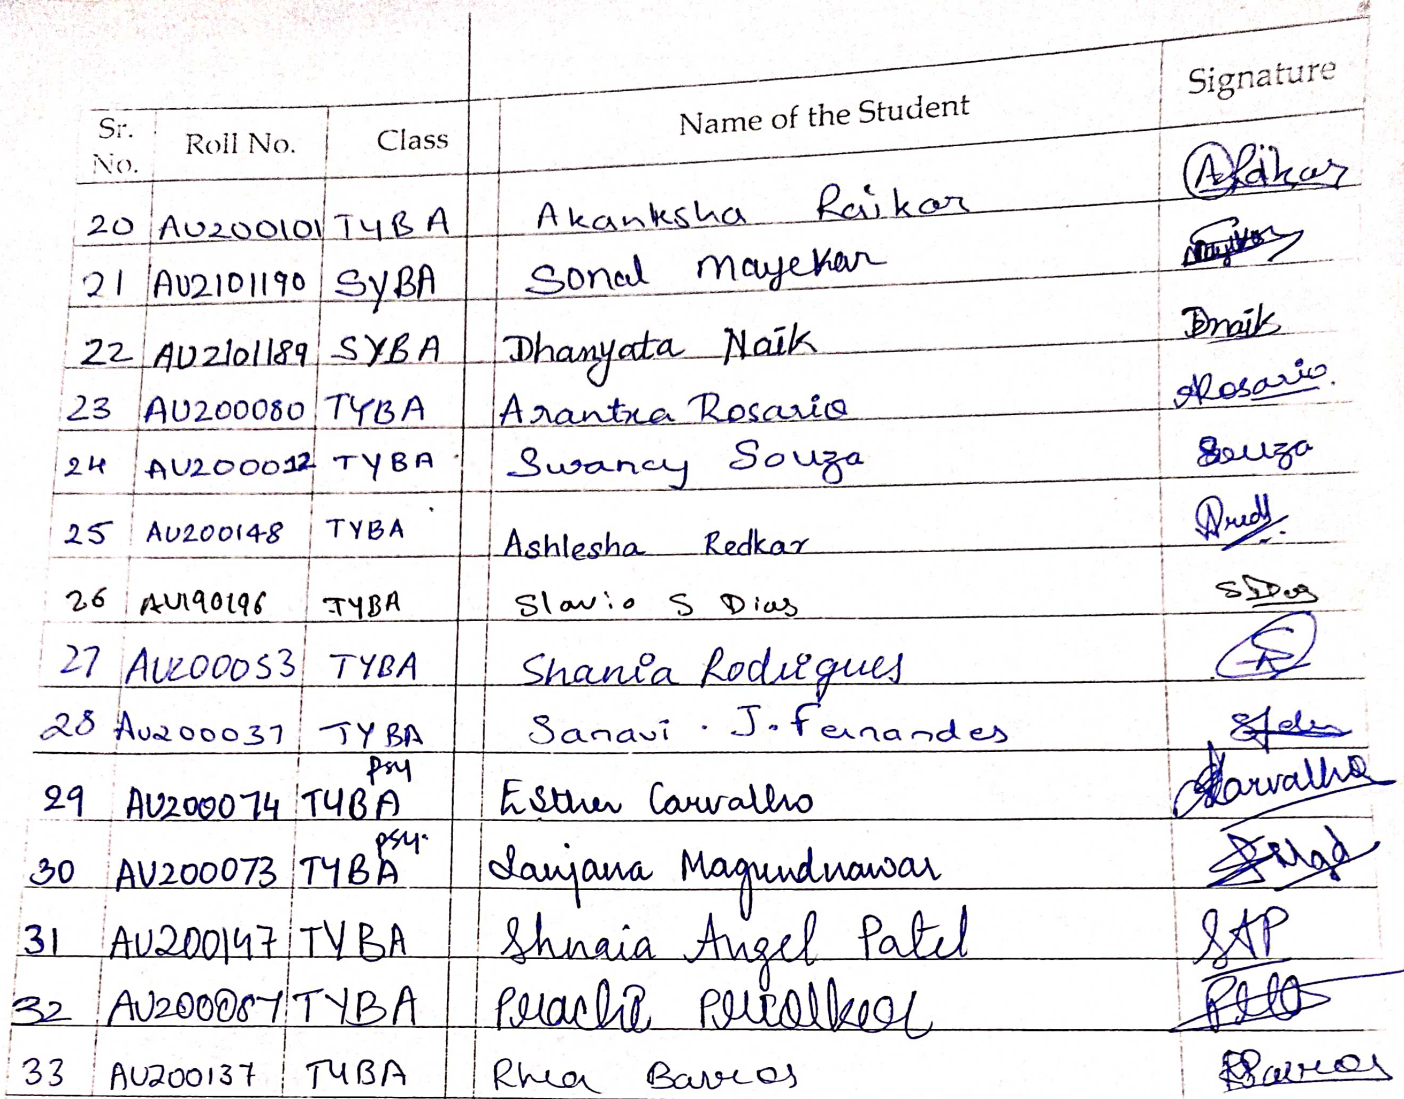 Sr. No. Roll No. Class Name of the Student Signature
20 AU200101 TYBA Akanksha Raikar ARaikar
21 AU2101190 SYBA Sonal Mayekar
22 AU2101189 SYBA Dhanyata Naik Dnaik
23 AU200080 TYBA Arantxa Rosario ARosario.
24 AU200012 TYBA Swancy Souza Souza
25 AU200148 TYBA Ashlesha Redkar
26 AU190196 TYBA Slavio S Dias SDias
27 AU200053 TYBA Shania Rodrigues
28 AU200037 TYBA Sanavi . J. Fernandes
29 AU200074 TYBA Psy Esther Carvalho Carvalho
30 AU200073 TYBA psy. Sanjana Magundnawar
31 AU200147 TYBA Shnaia Angel Patel SAP
32 TYBA Prachi
33 AU200137 TYBA Rhea Barros RBarros